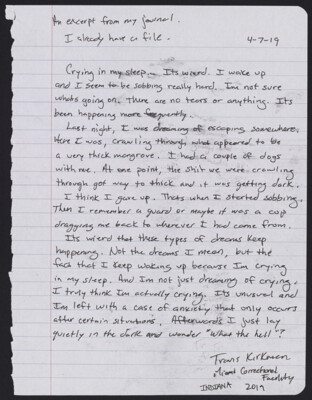 An excerpt from my journal.
I already have a file. 4-7-19
Crying in my sleep. Its wierd. I wake up
and I seem to be sobbing really hard. Im not sure
whats going on. There are no tears or anything. Its
been happening more frequently.
Last night, I was dreaming of escaping somewhere.
Here I was, crawling through what appeared to be
a very thick mangrove. I had a couple of dogs
with me. At one point, the shit we were crawling
through got way to thick and it was getting dark.
I think I gave up. Thats when I started sobbing.
Then I remember a guard or maybe it was a cop
dragging me back to wherever I had come from.
Its wierd that these types of dreams keep
happening. Not the dreams I mean, but the
fact that I keep waking up because Im crying
in my sleep. And Im not just dreaming of crying.
I truly think Im actually crying. Its unusual and
Im left with a case of anxiety that only occurs
after certain situations. Afterwards I just lay
quietly in the dark and wonder "What the hell"?
Travis Kirkman
Miami Correctional
Facility
INDIANA 2019